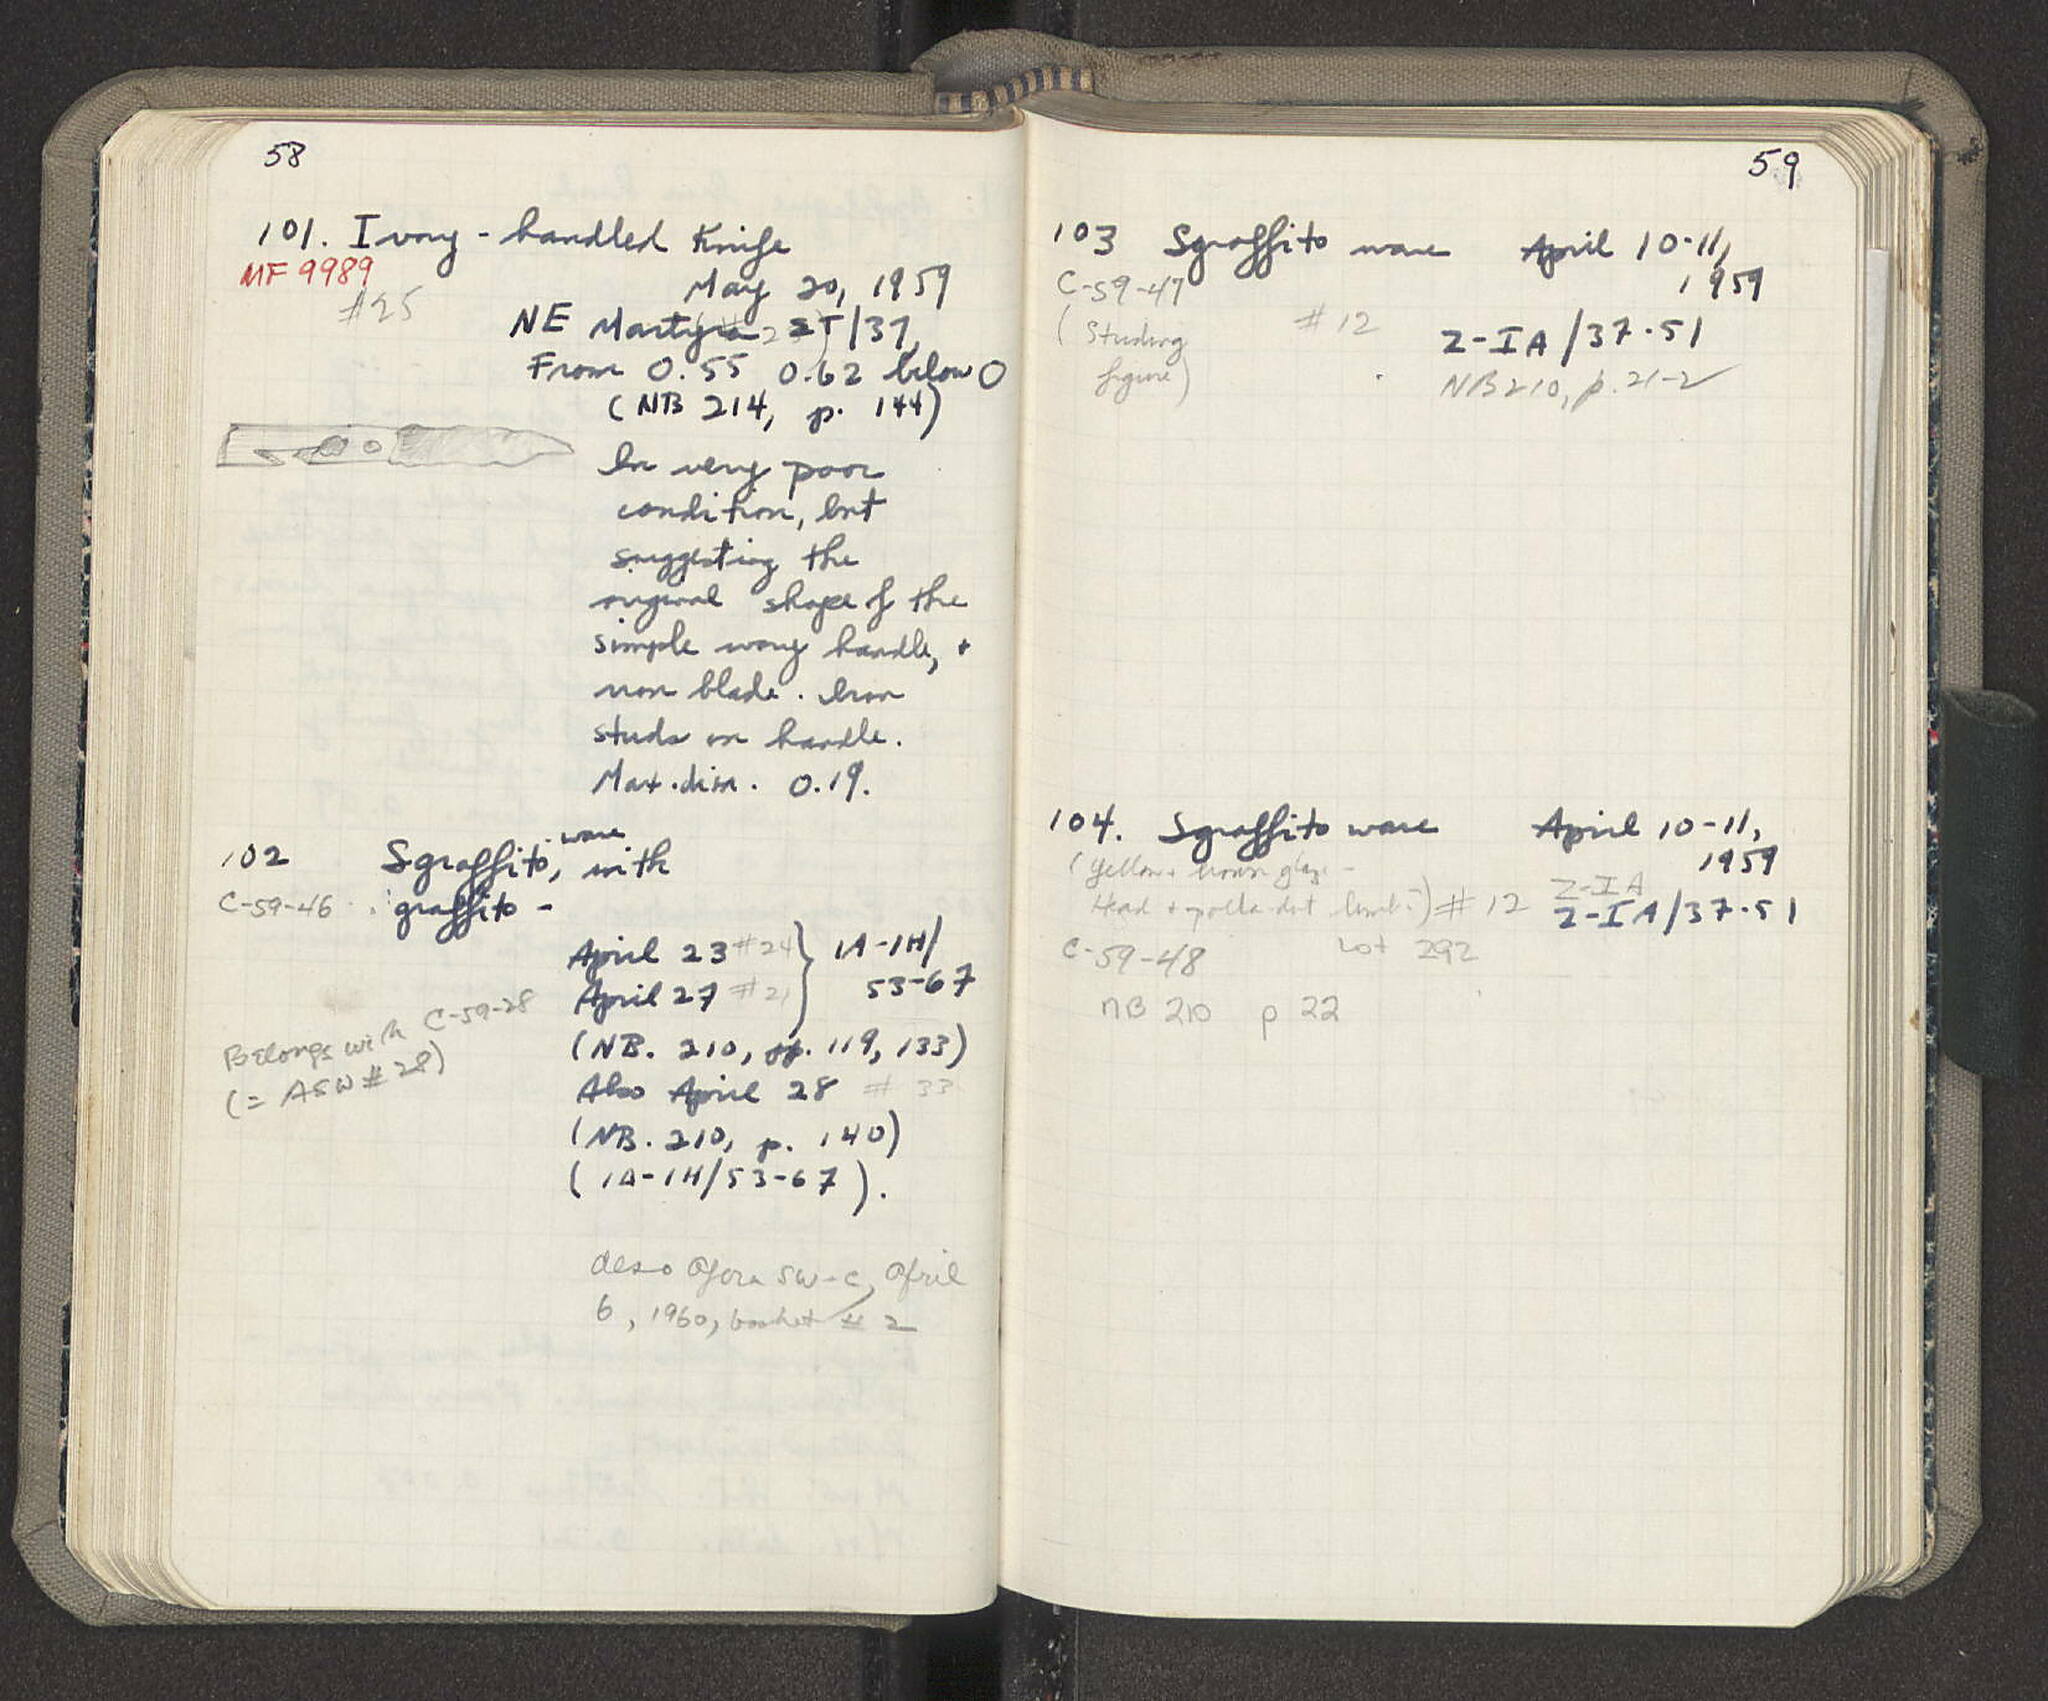 58
101. Ivory-handled Knife
MF 9989
#25
May 20, 1959
NE Martyra ΣT/37,
From 0.55 0.62 below 0
(NB 214, p. 144)
In very poor
condition, but
suggesting the
original shape of the
simple ivory handle, +
iron blade. Iron
studs on handle.
Max. dim. 0.19.
102 Sgraffito, ware with
C-59-46 graffito -
April 23 #24 } 1A-1H/
April 27 #21 } 53-67
Belongs with C-59-28
(= ASW # 28)
(NB. 210, pp. 119, 133)
Also April 28 # 33
(NB. 210, p. 140)
(1A-1H/53-67).
also Agora SW-C, April
6, 1960, basket # 2
59
103 Sgraffito ware April 10-11,
1959
C-59-47
(Standing
figure)
#12
Z-IA/37·51
NB 210, p. 21-2
104. Sgraffito ware April 10-11,
1959
(Yellow + brown glaze -
Head + polka dot) #12
Z-IA
Z-IA/37·51
C-59-48
Lot 292
NB 210 p 22